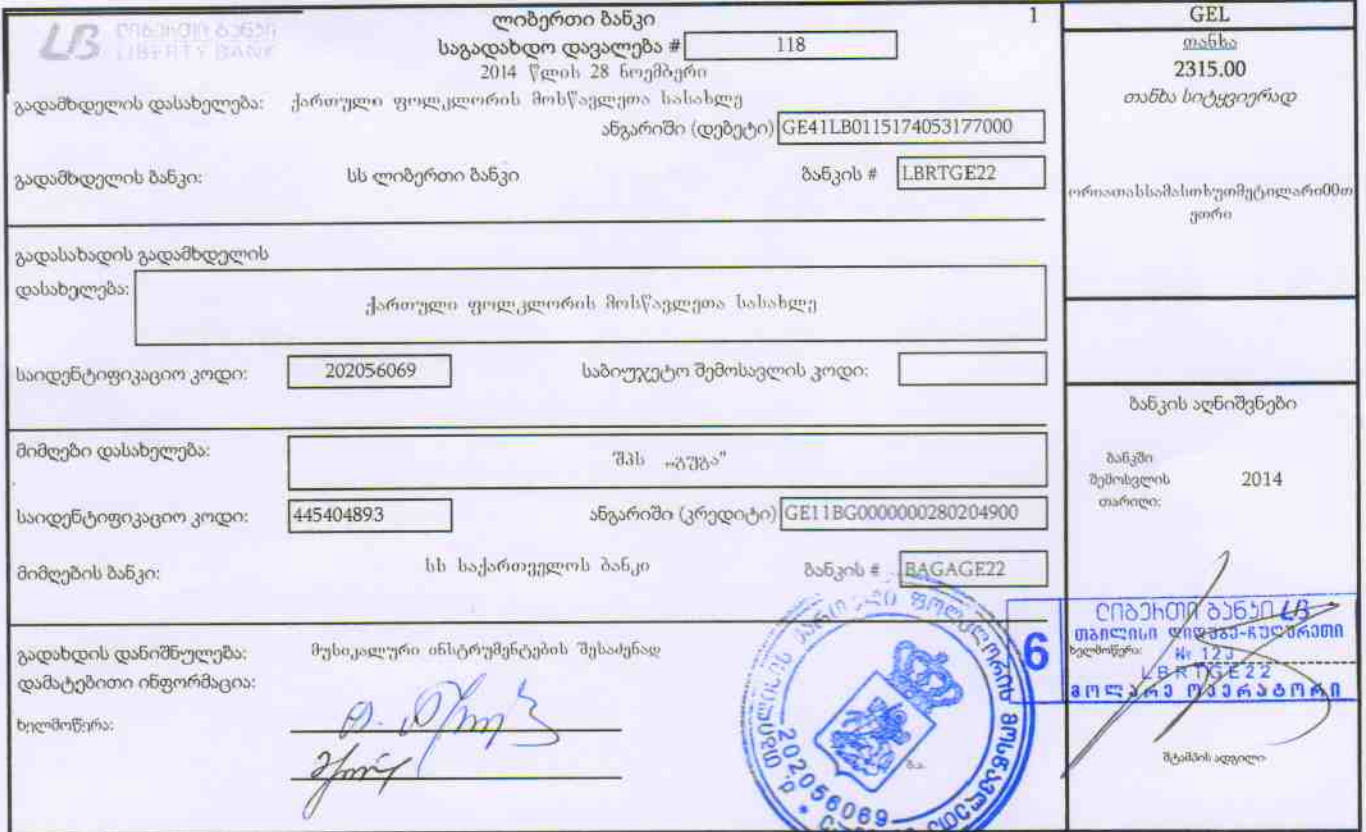 ლიბერთი ბანკი
LIBERTY BANK
ლიბერთი ბანკი 1
საგადახდო დავალება # 118
2014 წლის 28 ნოემბერი
გადამხდელის დასახელება: ქართული ფოლკლორის მოსწავლეთა სასახლე
ანგარიში (დებეტი) GE41LB0115174053177000
გადამხდელის ბანკი: სს ლიბერთი ბანკი ბანკის # LBRTGE22
გადასახადის გადამხდელის
დასახელება: ქართული ფოლკლორის მოსწავლეთა სასახლე
საიდენტიფიკაციო კოდი: 202056069 საბიუჯეტო შემოსავლის კოდი:
მიმღები დასახელება: შპს „გუგა"
საიდენტიფიკაციო კოდი: 445404893 ანგარიში (კრედიტი) GE11BG0000000280204900
მიმღების ბანკი: სს საქართველოს ბანკი ბანკის # BAGAGE22
გადახდის დანიშნულება: მუსიკალური ინსტრუმენტების შესაძენად
დამატებითი ინფორმაცია:
ხელმოწერა:
ბ.ა.
GEL
თანხა
2315.00
თანხა სიტყვიერად
ორიათასსამასთხუთმეტილარი00თ
ეთრი
ბანკის აღნიშვნები
ბანკში
შემოსვლის
თარიღი: 2014
6
ლიბერთი ბანკი LB
თბილისი დიდუბე-ჩუღურეთი
ხელმოწერა: № 123
LBRTGE22
მოლარე ოპერატორი
შტამპის ადგილი
ფოლკლორის მოსწავლეთა
202056069